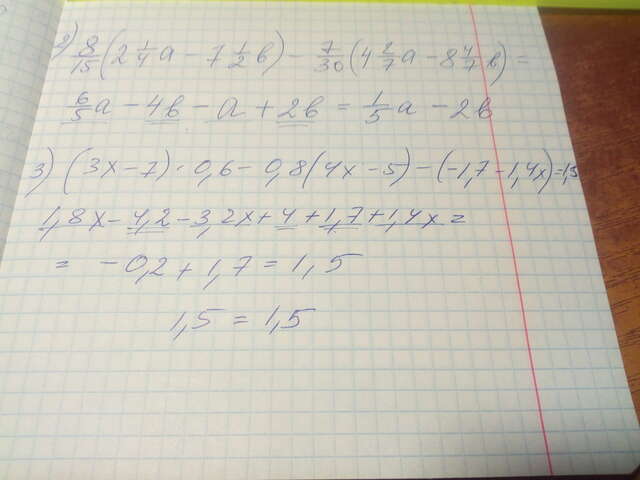 2) 8/15(2 1/4a - 7 1/2b) - 7/30(4 2/7a - 8 4/7b) =
6/5a - 4b - a + 2b = 1/5a - 2b
3) (3x - 7) · 0,6 - 0,8(4x - 5) - (-1,7 - 1,4x) = 1,5
1,8x - 4,2 - 3,2x + 4 + 1,7 + 1,4x =
= -0,2 + 1,7 = 1,5
1,5 = 1,5